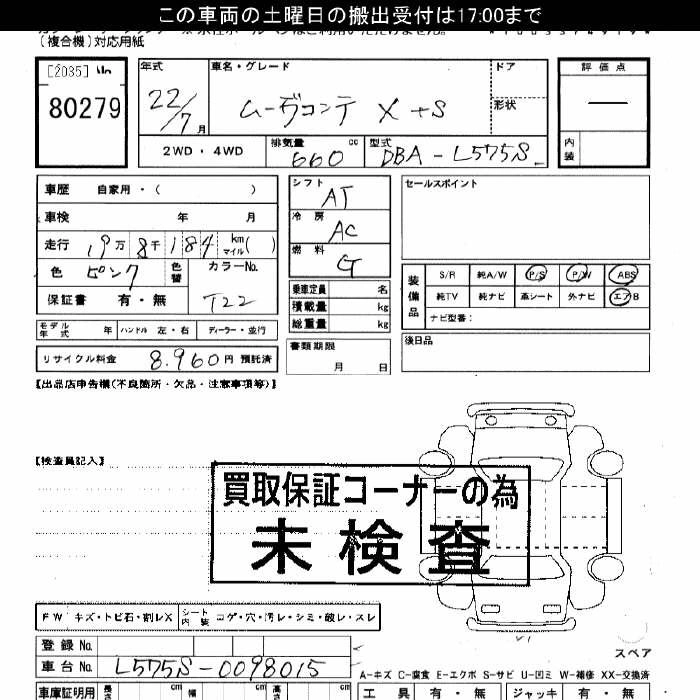 この車両の土曜日の搬出受付は17:00まで
(複合機)対応用紙
[2035]
80279
年式 22/7月
車名・グレード ムーヴコンテ X+S
ドア
形状
評価点
内装
2WD・4WD
排気量 660 cc
型式 DBA-L575S
車歴 自家用・( )
車検 年 月
走行 19万8千184 km マイル( )
色 ピンク 色替 カラーNo. T22
保証書 有・無
モデル年式 年 ハンドル 左・右 ディーラー・並行
リサイクル料金 8.960円 預託済
シフト AT
冷房 AC
燃料 G
乗車定員 名
積載量 kg
総重量 kg
書類期限 月 日
セールスポイント
装備品
S/R 純A/W P/S P/W ABS
純TV 純ナビ 革シート 外ナビ エアB
ナビ型番:
後日品
【出品店申告欄(不良箇所・欠品・注意事項等)】
【検査員記入】
買取保証コーナーの為
未検査
FW キズ・トビ石・割レX シート内装 コゲ・穴・汚レ・シミ・破レ・スレ
スペア
登録No.
車台No. L575S-0098015
A-キズ C-腐食 E-エクボ S-サビ U-凹ミ W-補修 XX-交換済
車庫証明用 長さ cm 幅 cm 高さ cm
工具 有・無 ジャッキ 有・無